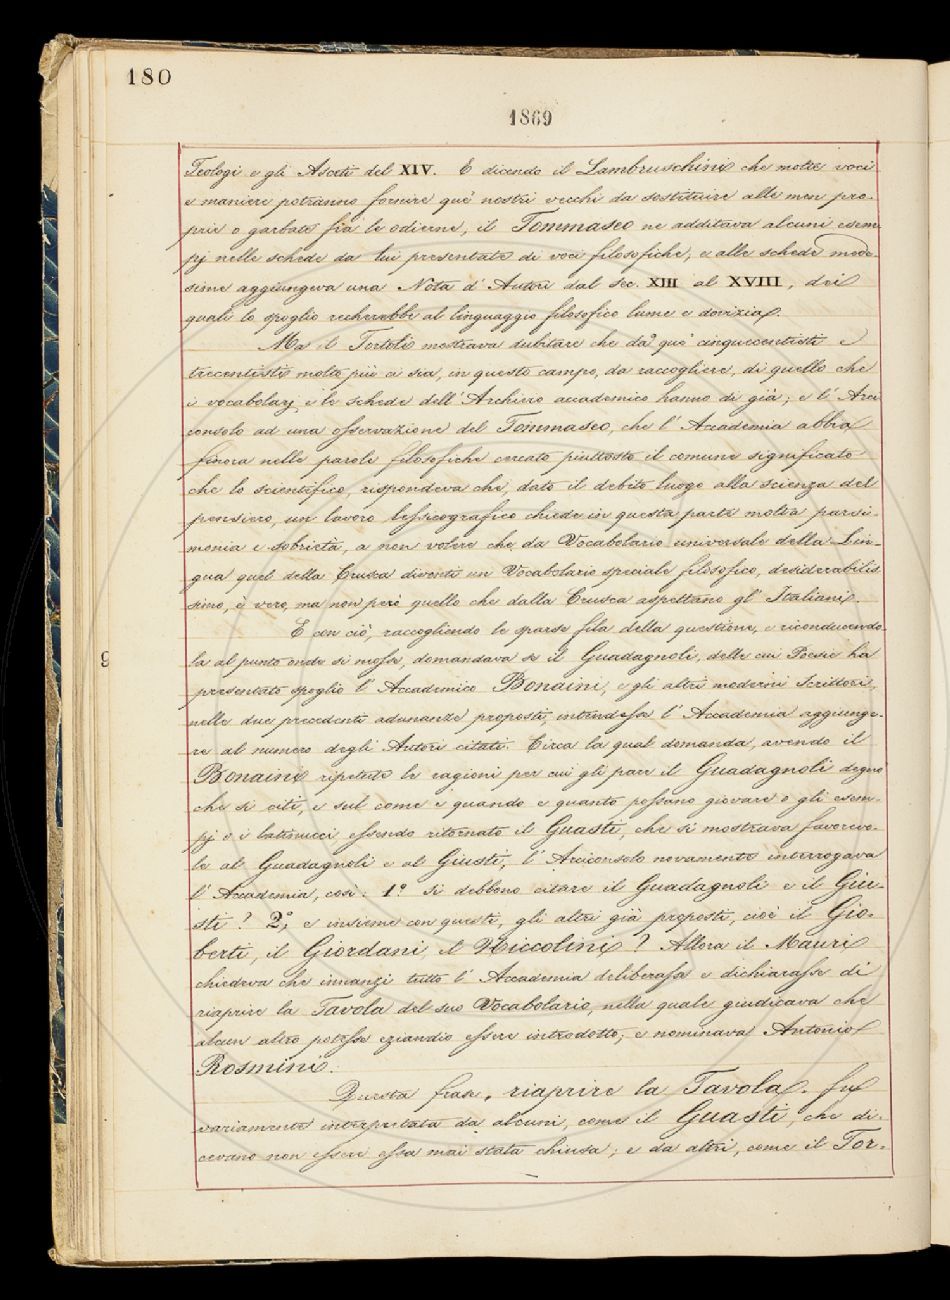 180
1869
Teologi e gli Asceti del XIV. E dicendo il Lambruschini che molte voci
e maniere potranno fornire que' nostri vecchi da sostituire alle men pro-
prie o garbate fra le odierne, il Tommaseo ne additava alcuni esem-
pj nelle schede da lui presentate di voci filosofiche; e alle schede mede-
sime aggiungeva una Nota d'Autori dal sec. XIII al XVIII, dei
quali lo spoglio recherebbe al linguaggio filosofico lume e dovizia.
Ma il Tortoli mostrava dubitare che da' que' cinquecentisti e
trecentisti molto più ci sia, in questo campo, da raccogliere, di quello che
i vocabolarj e le schede dell'Archivio accademico hanno di già; e l'Arci
consolo ad una osservazione del Tommaseo, che l'Accademia abbia
finora nelle parole filosofiche cercato piuttosto il comune significato
che lo scientifico, rispondeva che, dato il debito luogo alla scienza del
pensiero, un lavoro lessicografico chiede in questa parte molta parsi-
monia e sobrietà, a non volere che da Vocabolario universale della Lin-
gua quel della Crusca diventi un Vocabolario speciale filosofico, desiderabilis
simo, è vero, ma non però quello che dalla Crusca aspettano gl'Italiani.
E con ciò, raccogliendo le sparse fila della questione, e riconducendo-
la al punto onde si mosse, domandava se il Guadagnoli, delle cui Poesie ha
presentato spoglio l'Accademico Bonaini, e gli altri moderni Scrittori,
nelle due precedenti adunanze proposti, intendesse l'Accademia aggiunge-
re al numero degli Autori citati. Circa la qual domanda, avendo il
Bonaini ripetute le ragioni per cui gli pare il Guadagnoli degno
che si citi, e sul come e quando e quanto possano giovare o gli esem-
pj o i latinucci essendo ritornato il Guasti, che si mostrava favorevo-
le al Guadagnoli e al Giusti, l'Arciconsolo novamente interrogava
l'Accademia, così: 1° Si debbono citare il Guadagnoli e il Giu-
sti? 2°, e insieme con questi, gli altri già proposti, cioè il Gio-
berti, il Giordani, il Niccolini? Allora il Mauri
chiedeva che innanzi tutto l'Accademia deliberasse e dichiarasse di
riaprire la Tavola del suo Vocabolario, nella quale giudicava che
alcun altro potesse eziandio essere introdotto; e nominava Antonio
Rosmini.
Questa frase, riaprire la Tavola, fu
variamente interpretata da alcuni, come il Guasti, che di-
cevano non essere essa mai stata chiusa; e da altri, come il Tor-